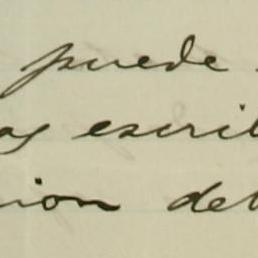 puede
as escri
ion del